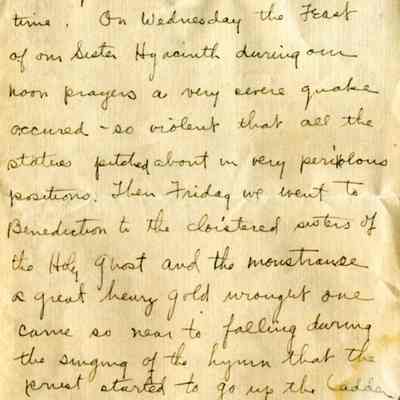 time. On Wednesday the Feast
of our Sister Hyacinth during our
noon prayers a very severe quake
occured - so violent that all the
statues pitched about in very periplous
positions. Then Friday we went to
Benediction to the cloistered sisters of
the Holy Ghost and the monstranse
a great heavy gold wrought one
came so near to falling during
the singing of the hymn that the
priest started to go up the ladder